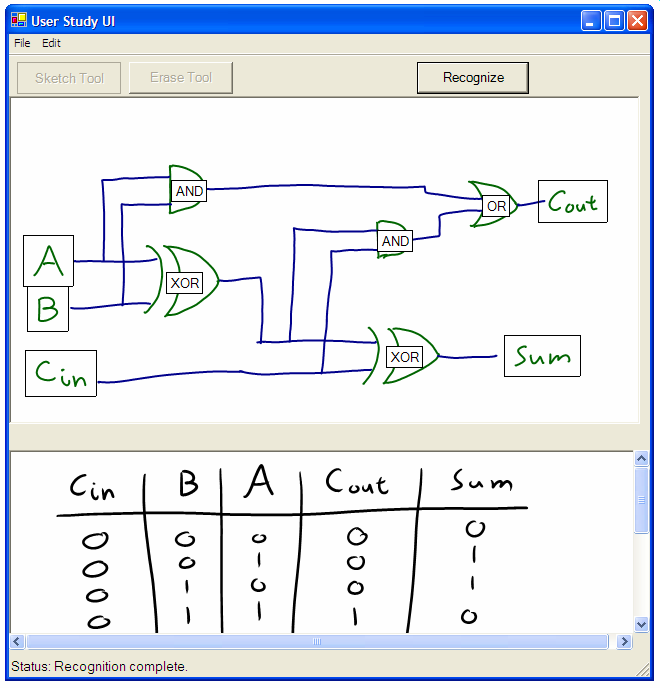 User Study UI
File Edit
Sketch Tool Erase Tool Recognize
AND
AND
OR
Cout
A
XOR
B
XOR
Sum
Cin
Cin B A Cout Sum
0 0 0 0 0
0 0 1 0 1
0 1 0 0 1
0 1 1 1 0
Status: Recognition complete.